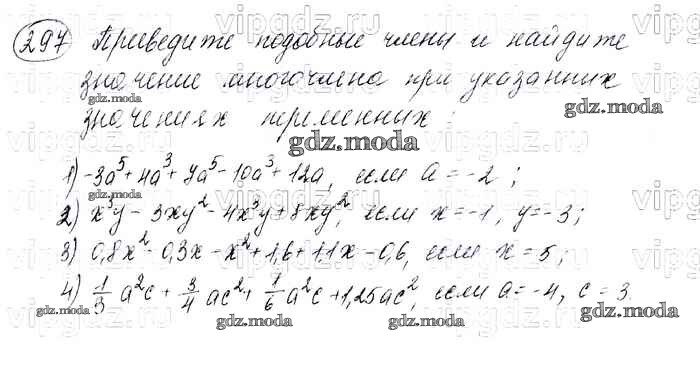 297 Приведите подобные члены и найдите
значение многочлена при указанных
значениях переменных:
1) -3a⁵+4a³+7a⁵-10a³+12a, если a=-2;
2) x³y-3xy²-4x³y+8xy², если x=-1, y=-3;
3) 0,8x²-0,3x-x²+1,6+1,1x-0,6, если x=5;
4) 1/3 a²c+3/4 ac²+1/6 a²c+1,25ac², если a=-4, c=3.
vipgdz.ru
gdz.moda